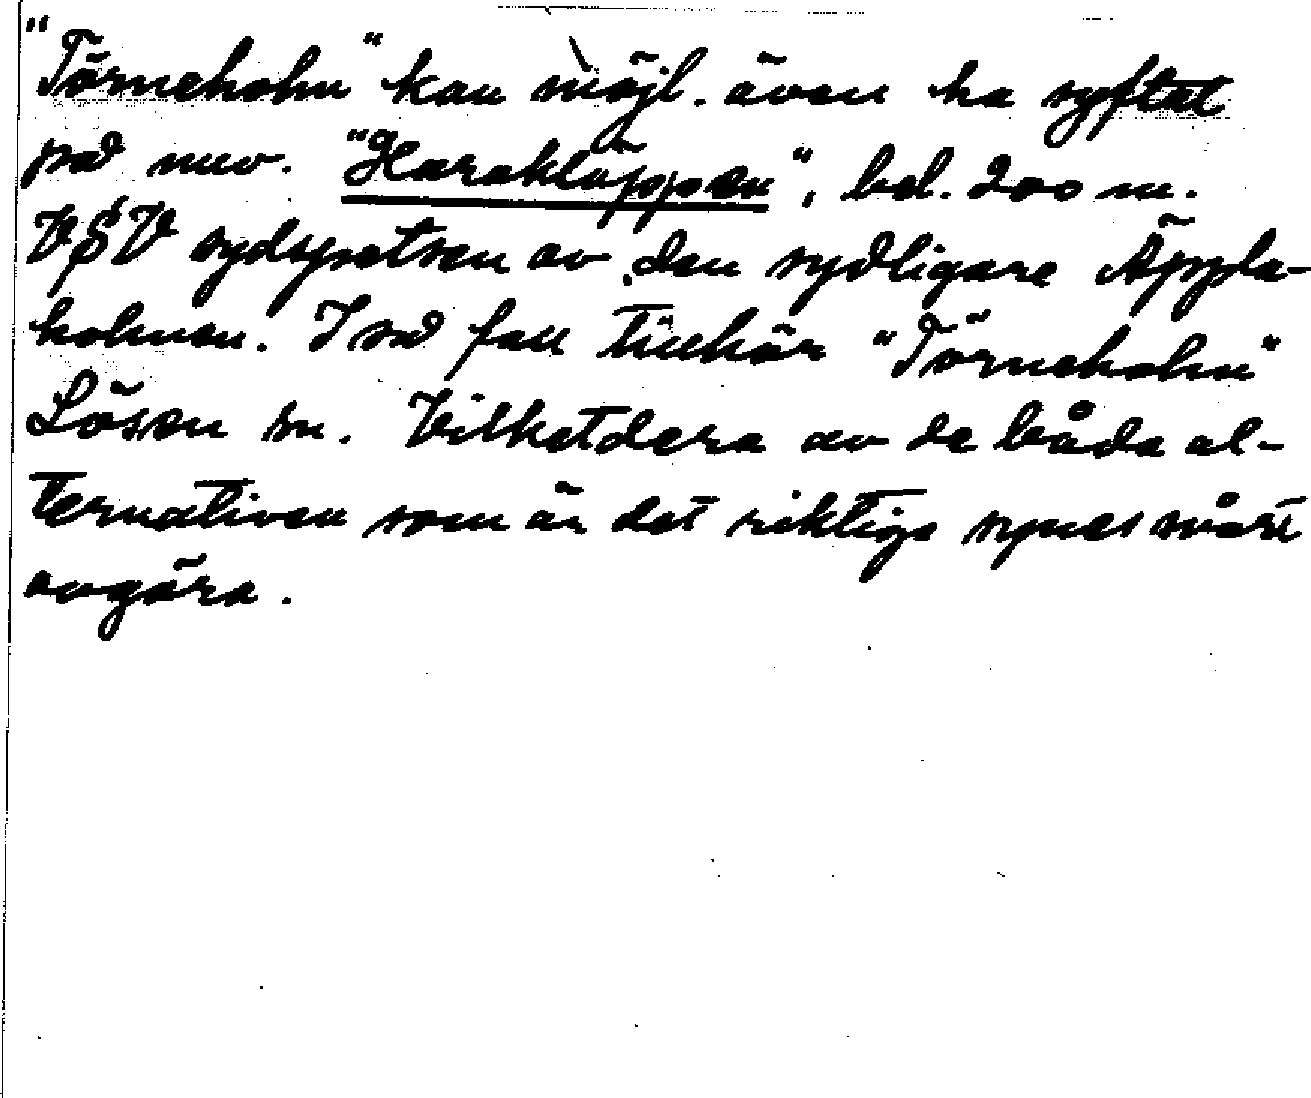 "Törneholm" kan möjl. även ha syftat
på nuv. "Harakläppen", bel. 200 m.
VSV sydspetsen av den sydligare Äppla-
holmen. I så fall tillhör "Törneholm"
Lösen sn. Vilketdera av de båda al-
ternativen som är det riktiga synes svårt
avgöra.